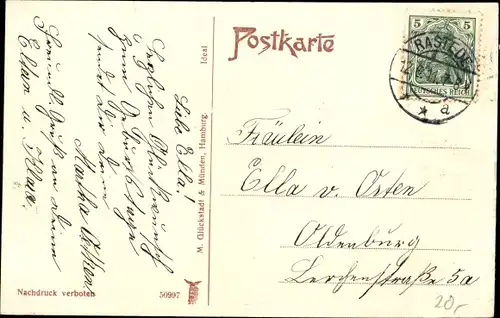 Postkarte
Ideal
M. Glückstadt & Münden, Hamburg.
Nachdruck verboten
50997
5 5
DEUTSCHES REICH
RASTEDE
* a
Liebe Ella!
Herzlichen Glückwunsch
z. Geburtstage
sendet dir deine
Martha
Freundl. Gruß an deine
Eltern u. Klara.
Fräulein
Ella v. Osten
Oldenburg
Lerchenstraße 5a
20,-